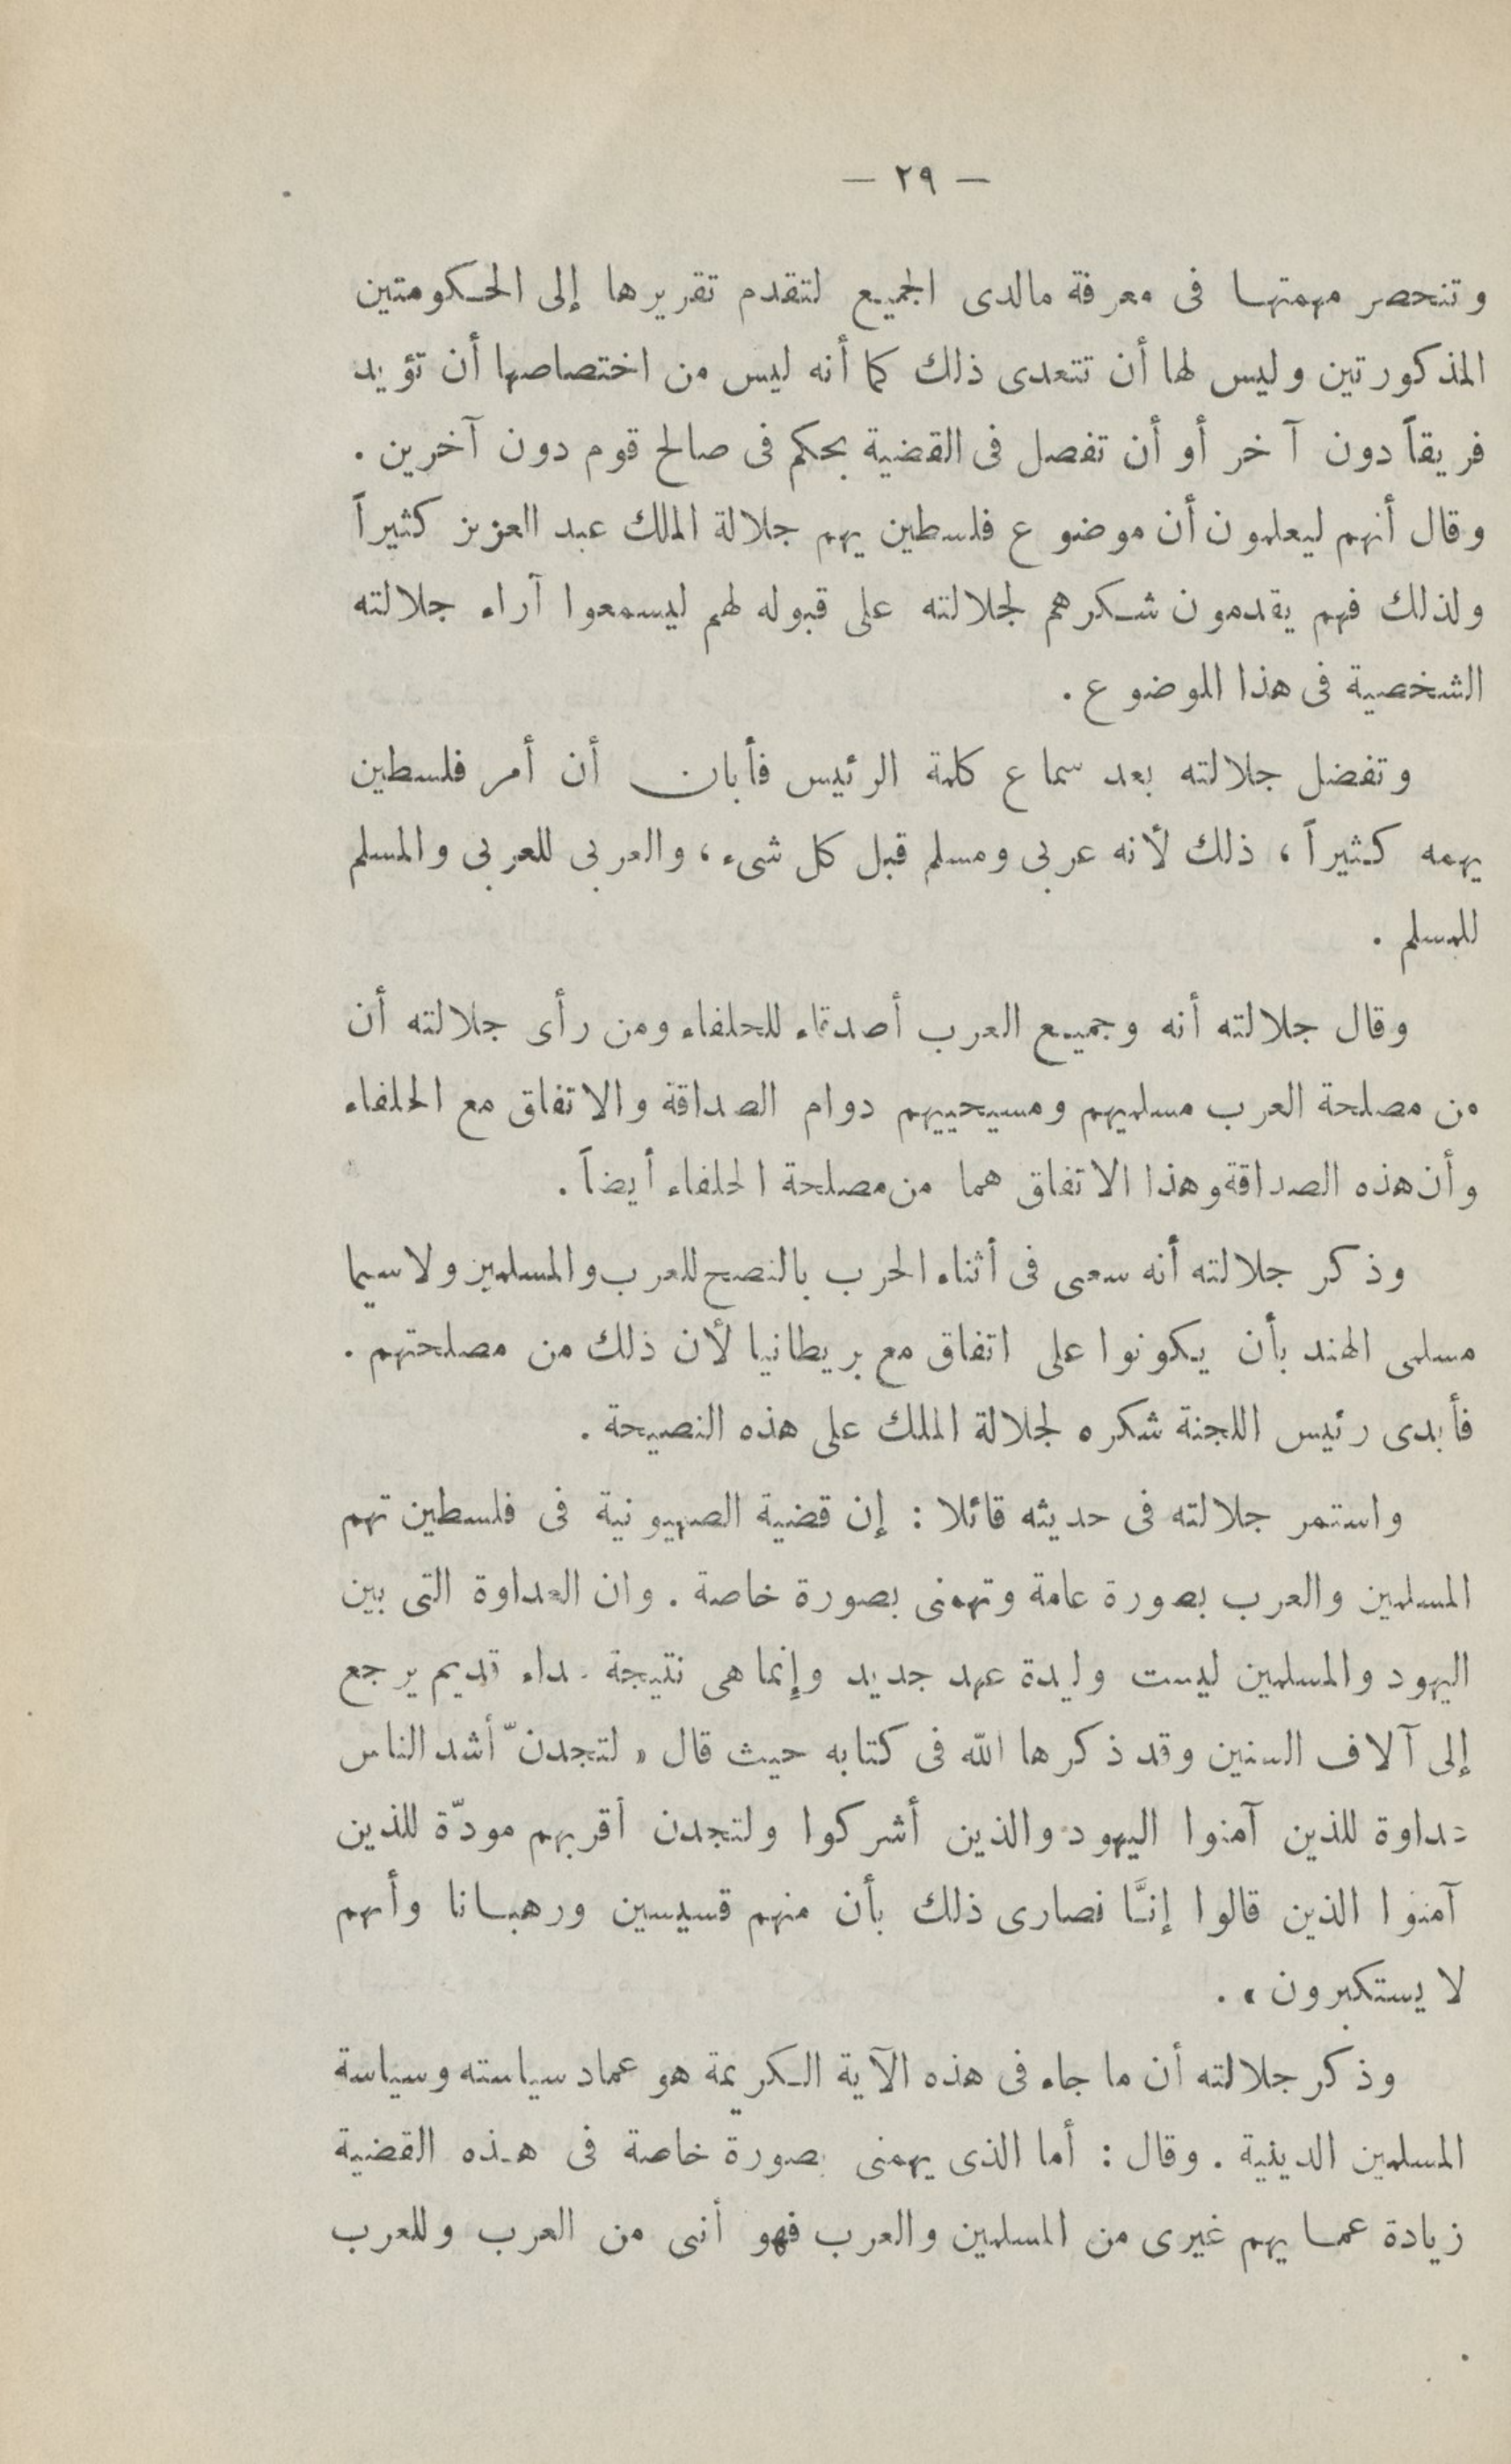 — ٢٩ —
وتنحصر مهمتها فى معرفة مالدى الجميع لتقدم تقريرها إلى الحكومتين
المذكورتين وليس لها أن تتعدى ذلك كما أنه ليس من اختصاصها أن تؤيد
فريقاً دون آخر أو أن تفصل فى القضية بحكم فى صالح قوم دون آخرين .
وقال أنهم ليعلمون أن موضوع فلسطين يهم جلالة الملك عبد العزيز كثيراً
ولذلك فهم يقدمون شكرهم لجلالته على قبوله لهم ليسمعوا آراء جلالته
الشخصية فى هذا الموضوع .
وتفضل جلالته بعد سماع كلمة الرئيس فأبان أن أمر فلسطين
يهمه كثيراً ، ذلك لأنه عربى ومسلم قبل كل شىء ، والعربى للعربى والمسلم
للمسلم .
وقال جلالته أنه وجميع العرب أصدقاء للحلفاء ومن رأى جلالته أن
من مصلحة العرب مسلميهم ومسيحييهم دوام الصداقة والاتفاق مع الحلفاء
وأن هذه الصداقة وهذا الاتفاق هما من مصلحة الحلفاء أيضاً .
وذكر جلالته أنه سعى فى أثناء الحرب بالنصح للعرب والمسلمين ولاسيما
مسلمى الهند بأن يكونوا على اتفاق مع بريطانيا لأن ذلك من مصلحتهم .
فأبدى رئيس اللجنة شكره لجلالة الملك على هذه النصيحة .
واستمر جلالته فى حديثه قائلا : إن قضية الصهيونية فى فلسطين تهم
المسلمين والعرب بصورة عامة وتهمنى بصورة خاصة . وان العداوة التى بين
اليهود والمسلمين ليست وليدة عهد جديد وإنما هى نتيجة بداء قديم يرجع
إلى آلاف السنين وقد ذكرها الله فى كتابه حيث قال « لتجدنّ أشد الناس
عداوة للذين آمنوا اليهود والذين أشركوا ولتجدن أقربهم مودّة للذين
آمنوا الذين قالوا إنَّا نصارى ذلك بأن منهم قسيسين ورهبانا وأنهم
لا يستكبرون » .
وذكر جلالته أن ما جاء فى هذه الآية الكريمة هو عماد سياسته وسياسة
المسلمين الدينية . وقال : أما الذى يهمنى بصورة خاصة فى هذه القضية
زيادة عما يهم غيرى من المسلمين والعرب فهو أنى من العرب وللعرب